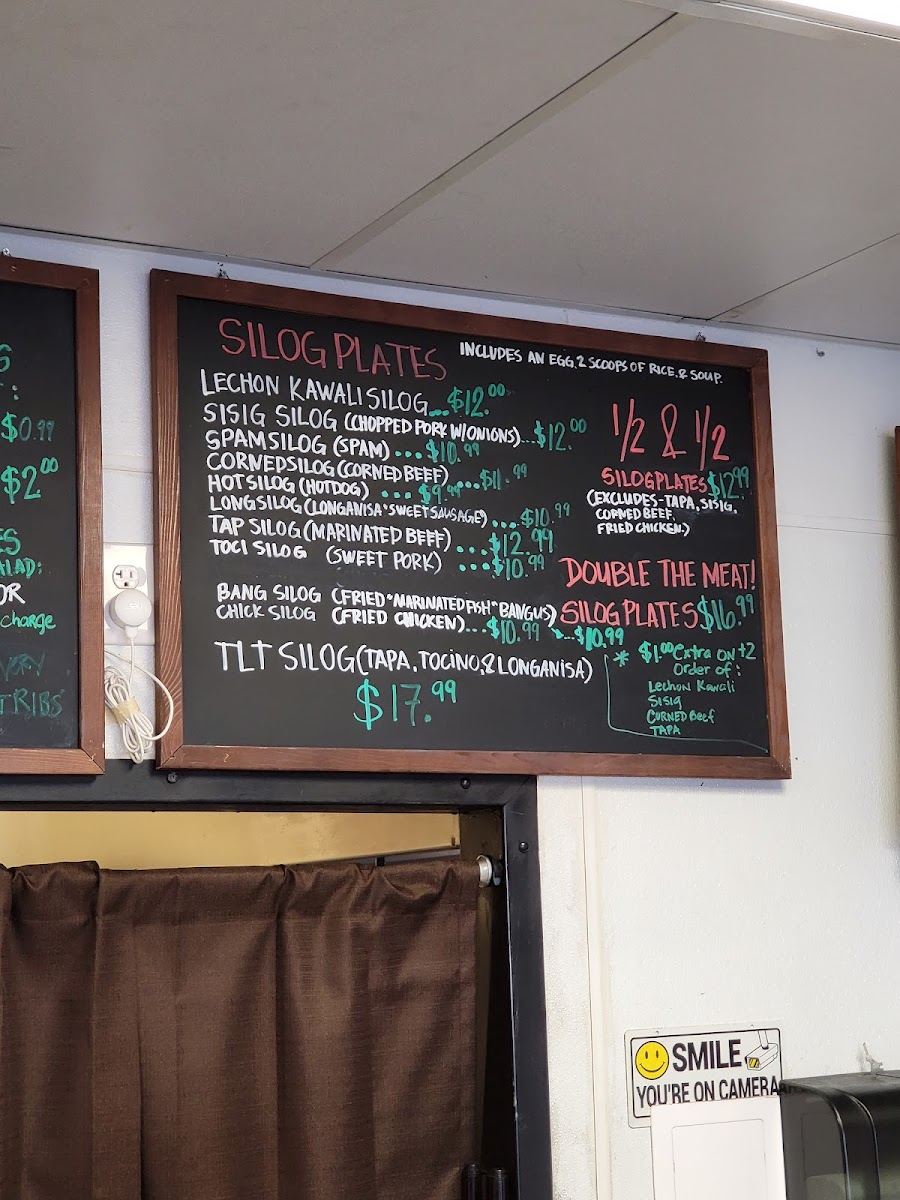 $0.99
$2⁰⁰
OR
charge
SILOG PLATES
INCLUDES AN EGG, 2 SCOOPS OF RICE, & SOUP.
LECHON KAWALI SILOG...$12.⁰⁰
SISIG SILOG (CHOPPED PORK W/ONIONS)...$12.⁰⁰
SPAM SILOG (SPAM)....$10.⁹⁹
CORNEDSILOG (CORNED BEEF) ...$11.⁹⁹
HOT SILOG (HOTDOG) ... $9.⁹⁹
LONGSILOG (LONGANISA*SWEET SAUSAGE) ....$10.⁹⁹
TAP SILOG (MARINATED BEEF) ...$12.99
TOCI SILOG (SWEET PORK) ...$10.⁹⁹
BANG SILOG (FRIED "MARINATED FISH" BANGUS) ...$10.99
CHICK SILOG (FRIED CHICKEN)...$10.⁹⁹
TLT SILOG (TAPA, TOCINO, & LONGANISA)
$17.⁹⁹
1/2 & 1/2
SILOG PLATES $12⁹⁹
(EXCLUDES-TAPA, SISIG,
CORNED BEEF,
FRIED CHICKEN.)
DOUBLE THE MEAT!
SILOG PLATES $16.⁹⁹
* $1.⁰⁰ Extra on +2
Order of :
Lechon Kawali
SISIG
CORNED Beef
TAPA
SMILE
YOU'RE ON CAMERA